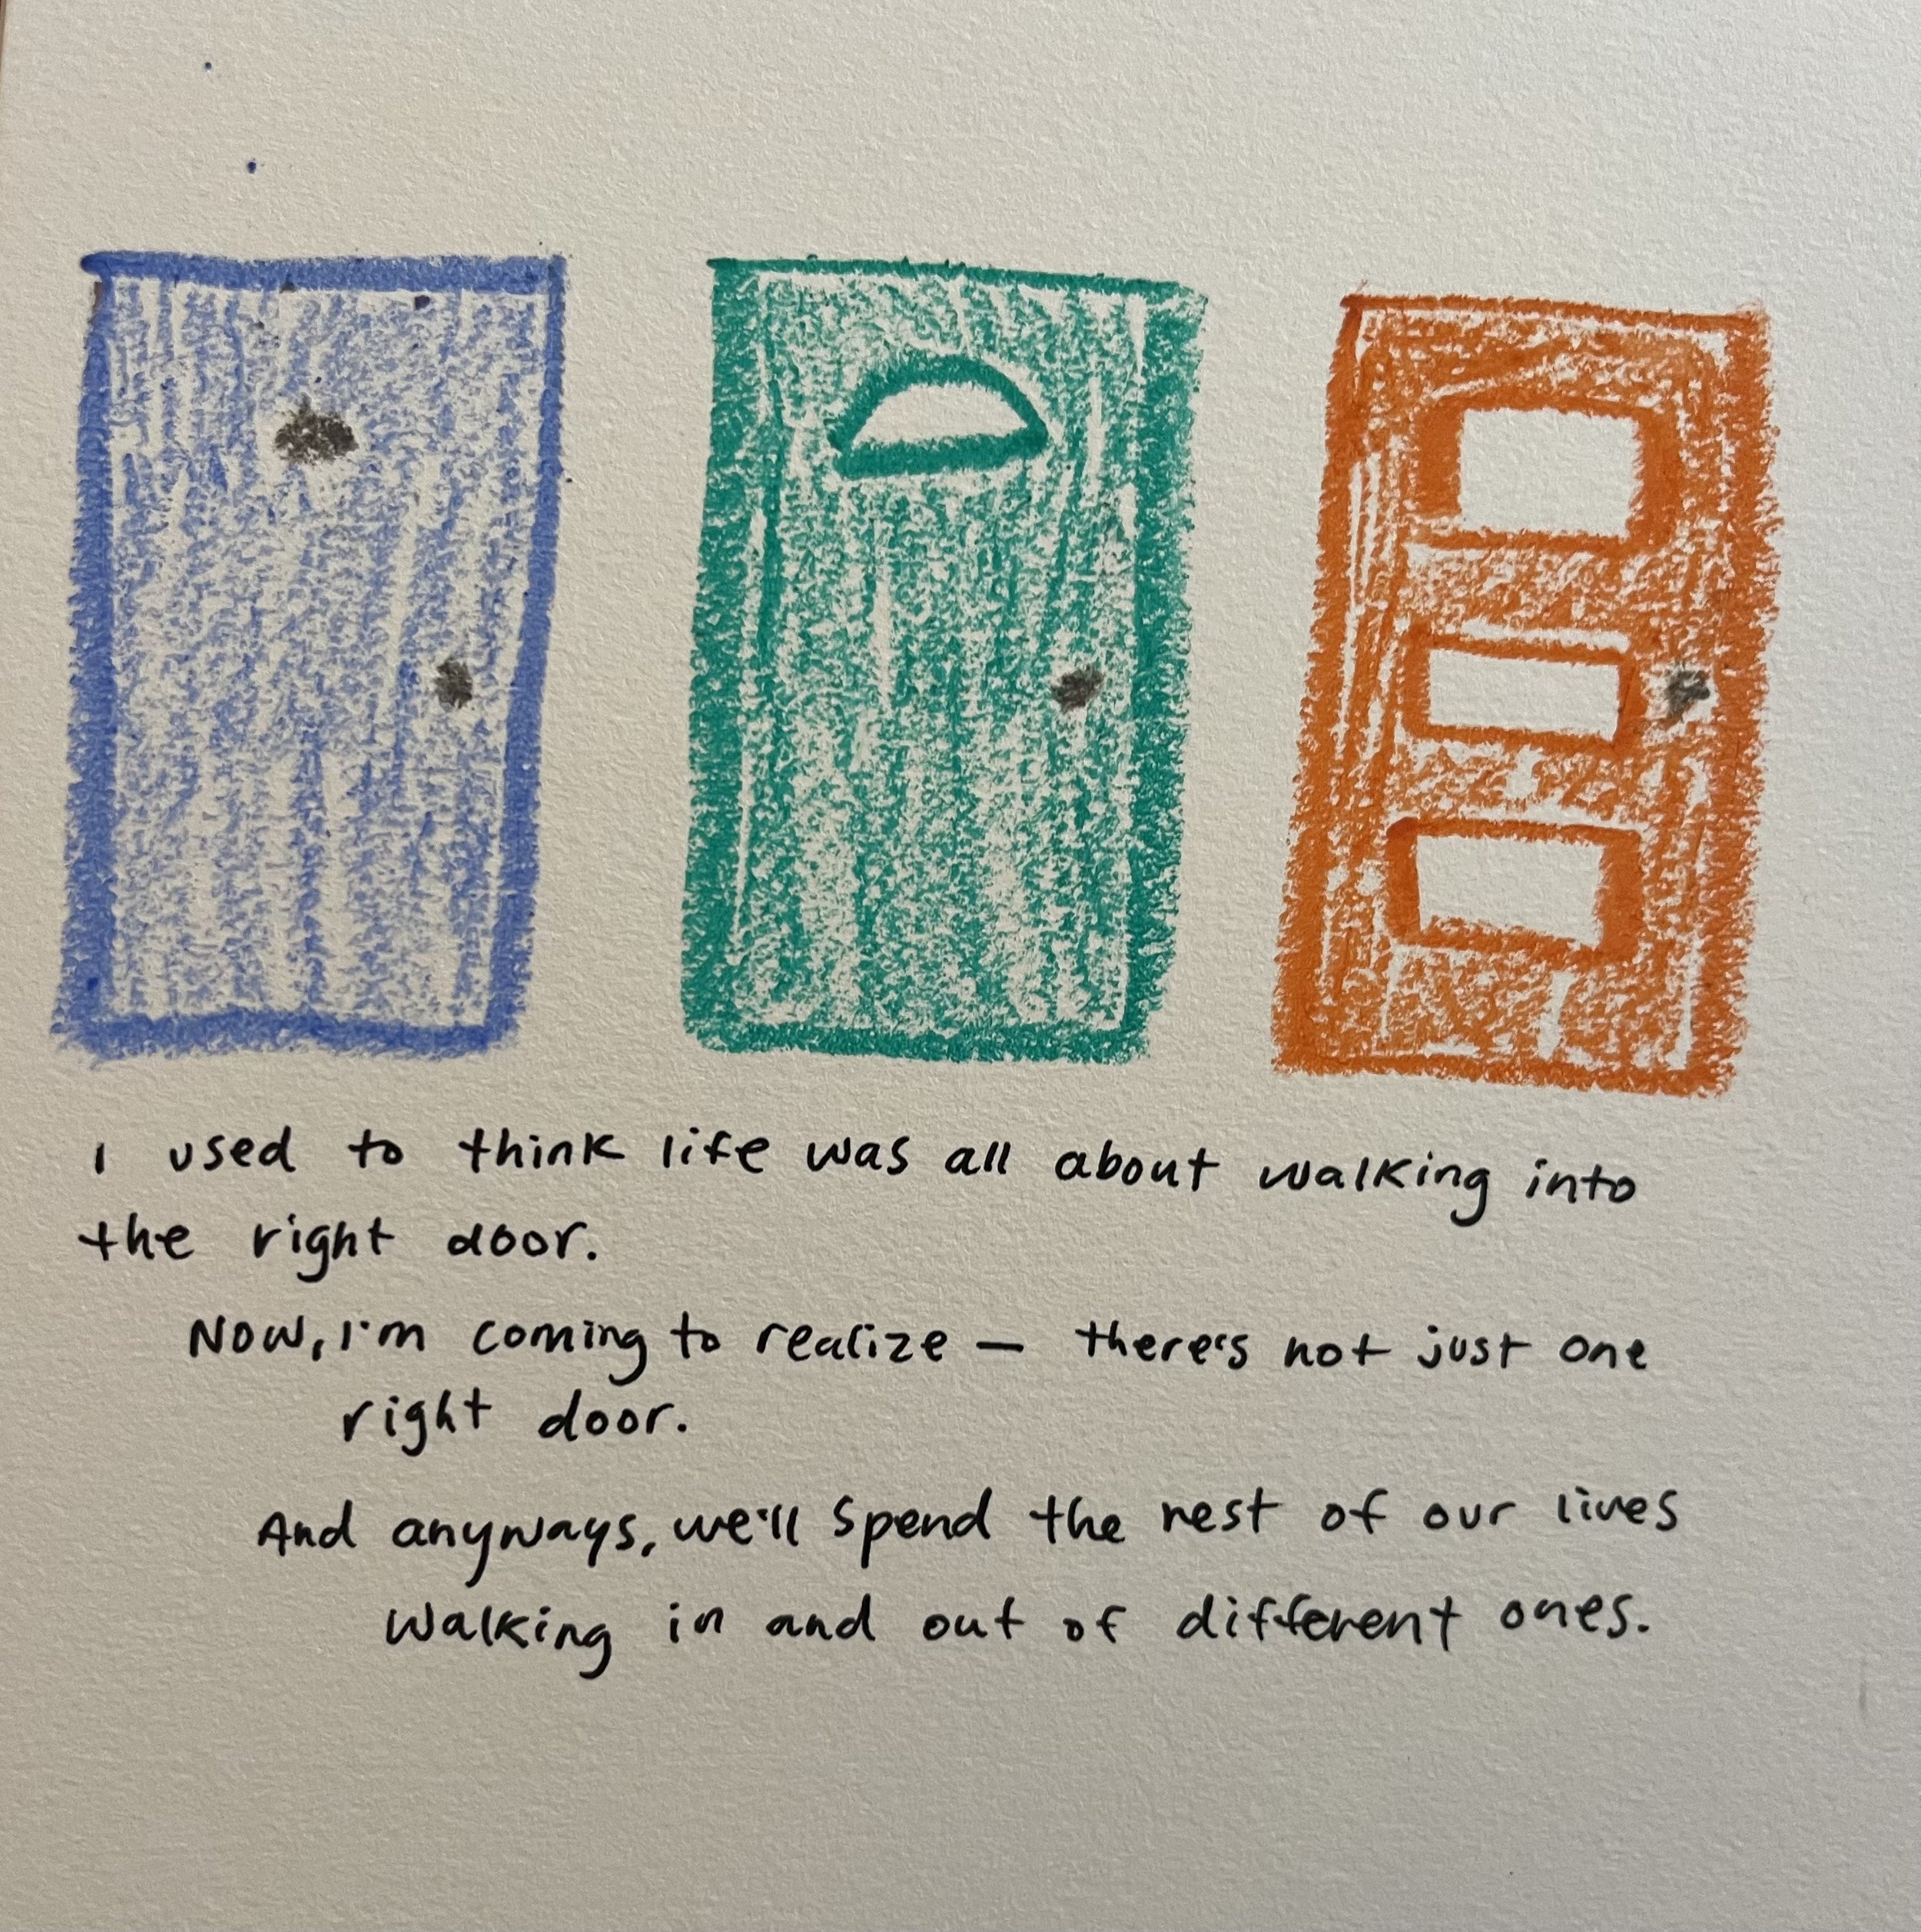 I used to think life was all about walking into
the right door.
Now, I'm coming to realize — there's not just one
right door.
And anyways, we'll spend the rest of our lives
walking in and out of different ones.